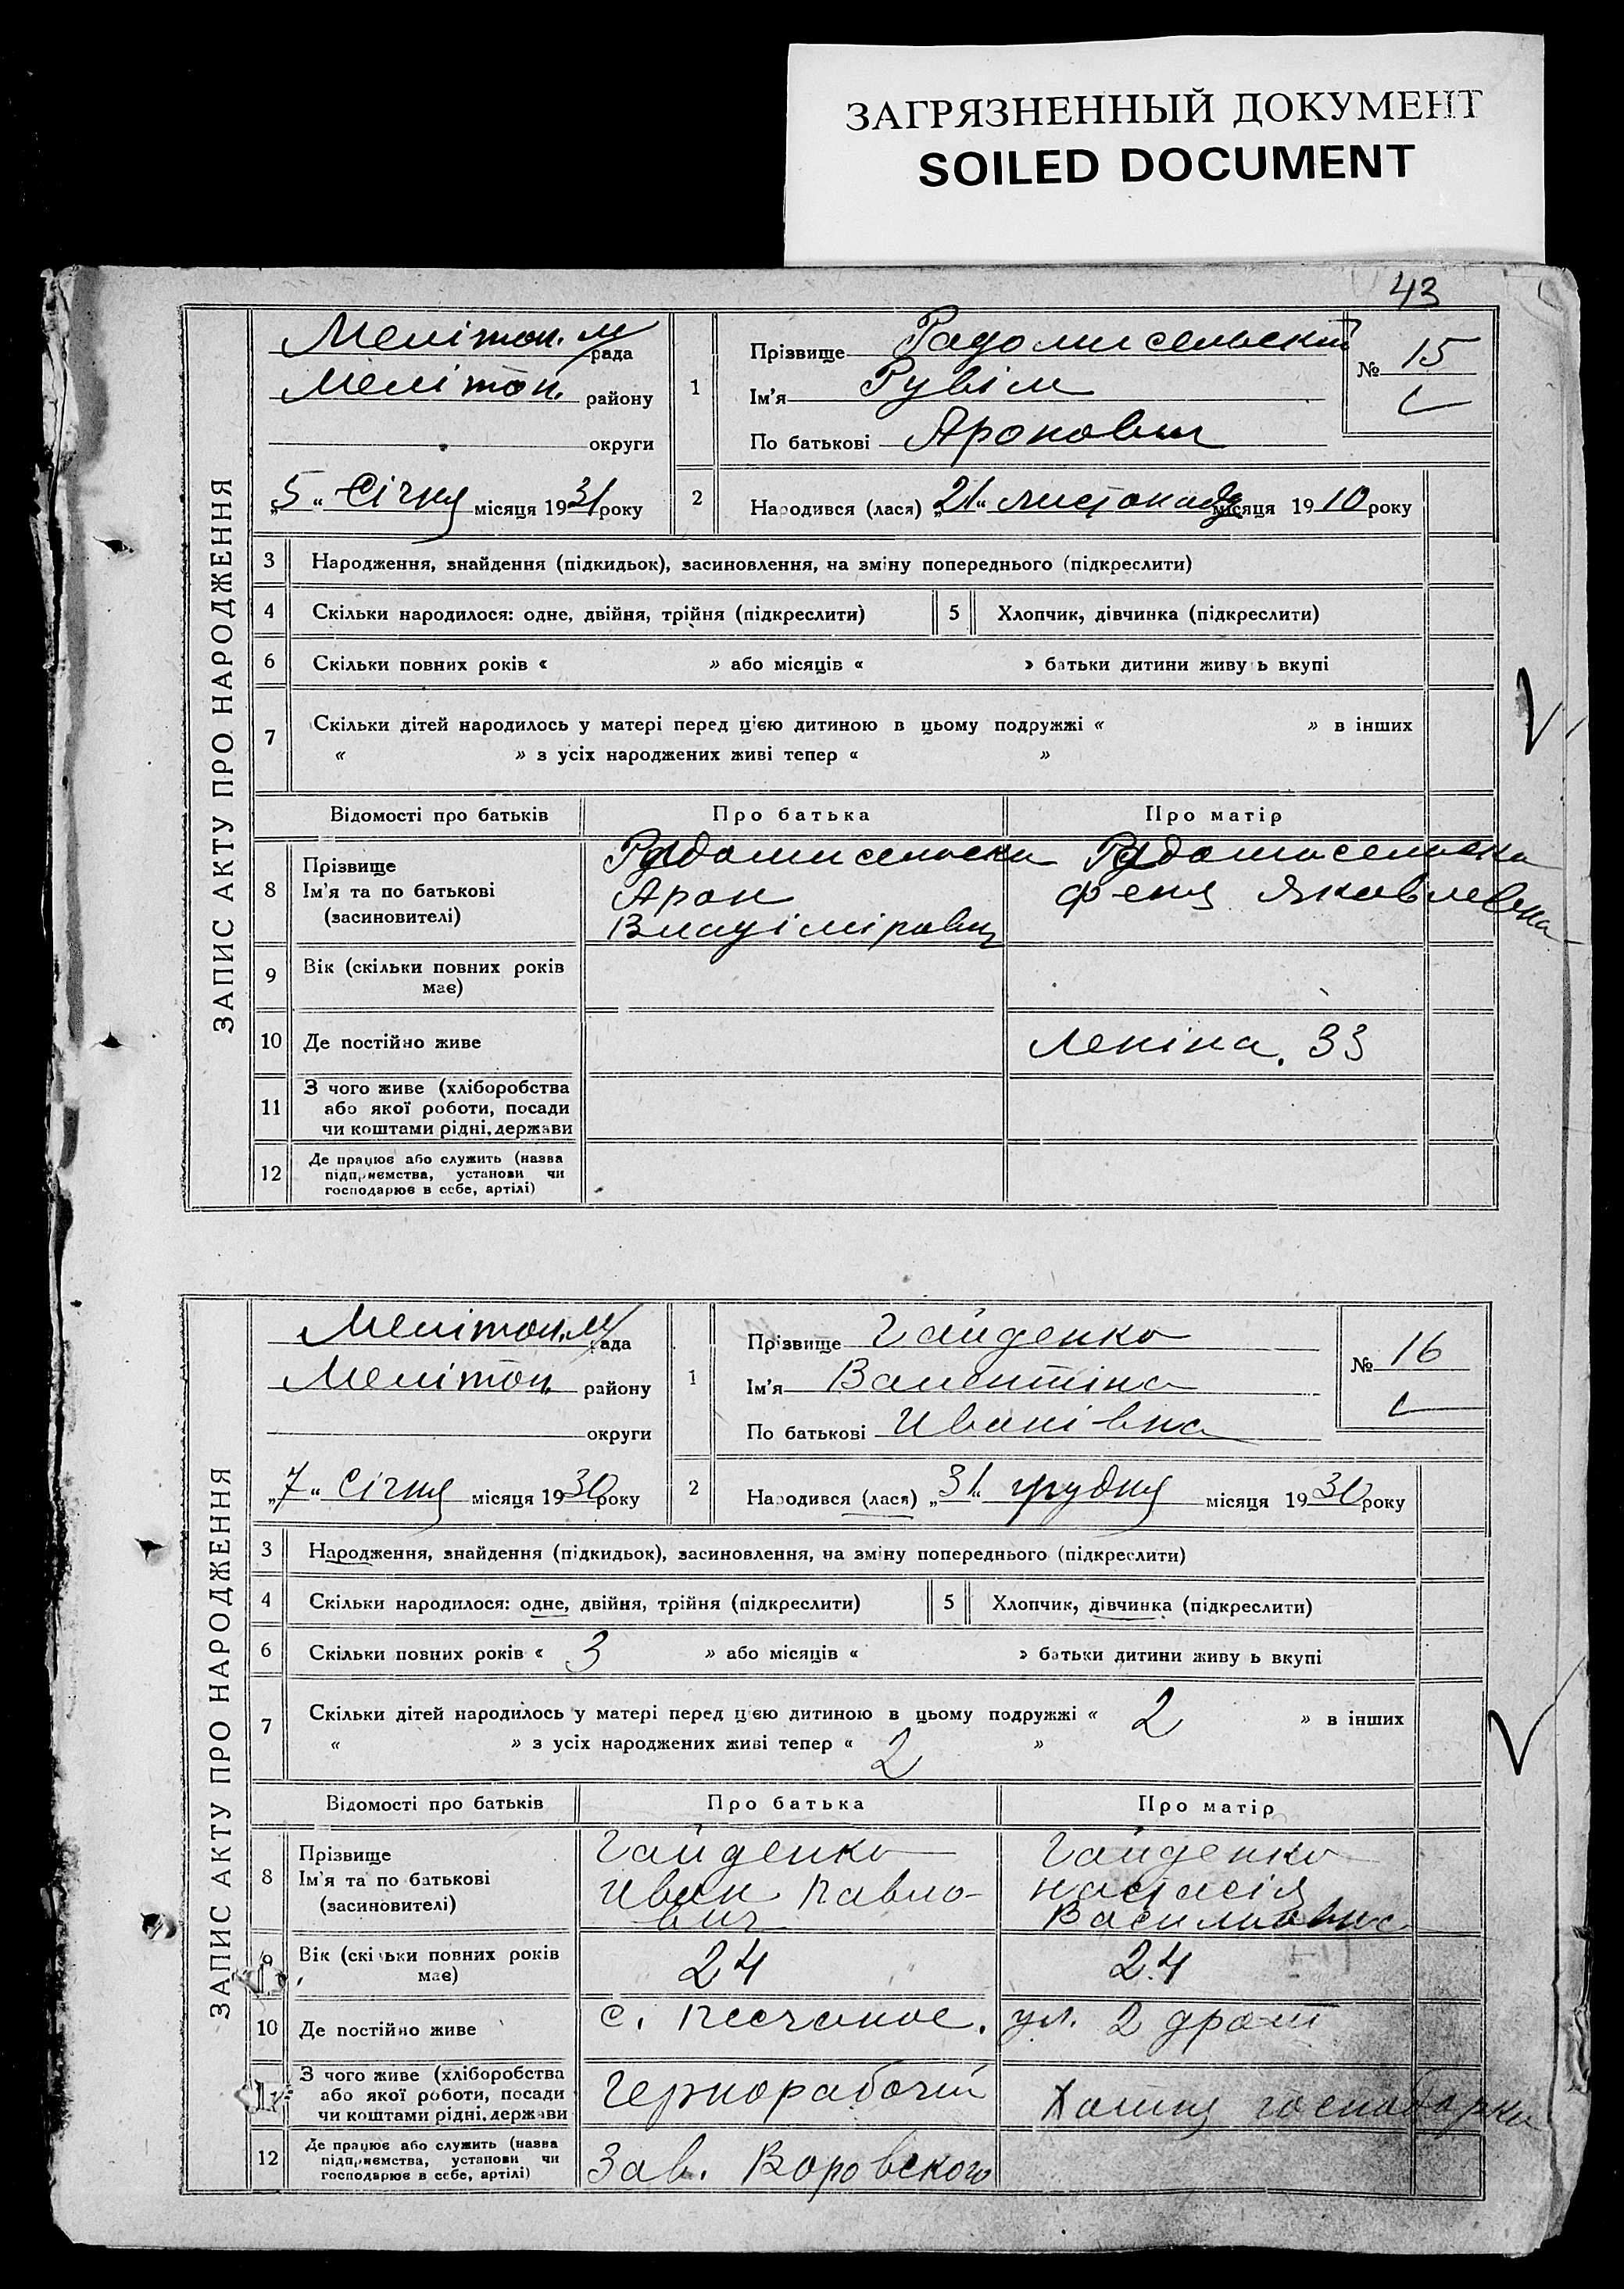 ЗАГРЯЗНЕННЫЙ ДОКУМЕНТ
SOILED DOCUMENT
43
ЗАПИС АКТУ ПРО НАРОДЖЕННЯ
Мелітоп. м рада
Мелітоп. району
округи
„5“ Січня місяця 1931 року
1
Прізвище Радомисельский
Ім'я Рувім
По батькові Аронович
№ 15
2
Народився (лася) „21“ листопада місяця 1910 року
3 Народження, знайдення (підкидьок), засиновлення, на зміну попереднього (підкреслити)
4 Скільки народилося: одне, двійня, трійня (підкреслити) 5 Хлопчик, дівчинка (підкреслити)
6 Скільки повних років « » або місяців « » батьки дитини живуть вкупі
7 Скільки дітей народилось у матері перед цією дитиною в цьому подружжі « » в інших
« » з усіх народжених живі тепер « »
Відомості про батьків Про батька Про матір
8 Прізвище
Ім'я та по батькові
(засиновителі)
Радомисельски
Арон
Владімірович
Радомисельска
Феня Яковлевна
9 Вік (скільки повних років
має)
10 Де постійно живе Леніна. 33
11 З чого живе (хліборобства
або якої роботи, посади
чи коштами рідні, держави
12 Де працює або служить (назва
підприємства, установи чи
господарює в себе, артілі)
ЗАПИС АКТУ ПРО НАРОДЖЕННЯ
Мелітоп. м рада
Мелітоп. району
округи
„7“ Січня місяця 1930 року
1
Прізвище Гайденко
Ім'я Валентіна
По батькові Иванівна
№ 16
2
Народився (лася) „31“ грудня місяця 1930 року
3 Народження, знайдення (підкидьок), засиновлення, на зміну попереднього (підкреслити)
4 Скільки народилося: одне, двійня, трійня (підкреслити) 5 Хлопчик, дівчинка (підкреслити)
6 Скільки повних років « 3 » або місяців « » батьки дитини живуть вкупі
7 Скільки дітей народилось у матері перед цією дитиною в цьому подружжі « 2 » в інших
« » з усіх народжених живі тепер « 2 »
Відомості про батьків Про батька Про матір
8 Прізвище
Ім'я та по батькові
(засиновителі)
Гайденко
Иван Павло-
вич
Гайденко
Настасія
Василивна
9 Вік (скільки повних років
має)
24 24
10 Де постійно живе с. Песчаное. ул. 2
З чого живе (хліборобства
або якої роботи, посади
чи коштами рідні, держави
Чернорабочій
господарка
12 Де працює або служить (назва
підприємства, установи чи
господарює в себе, артілі)
Зав. Воровского